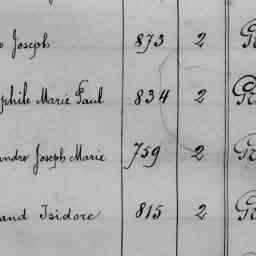 Joseph 873 2
phile Marie Paul 834 2
andre Joseph Marie 759 2
and Isidore 815 2